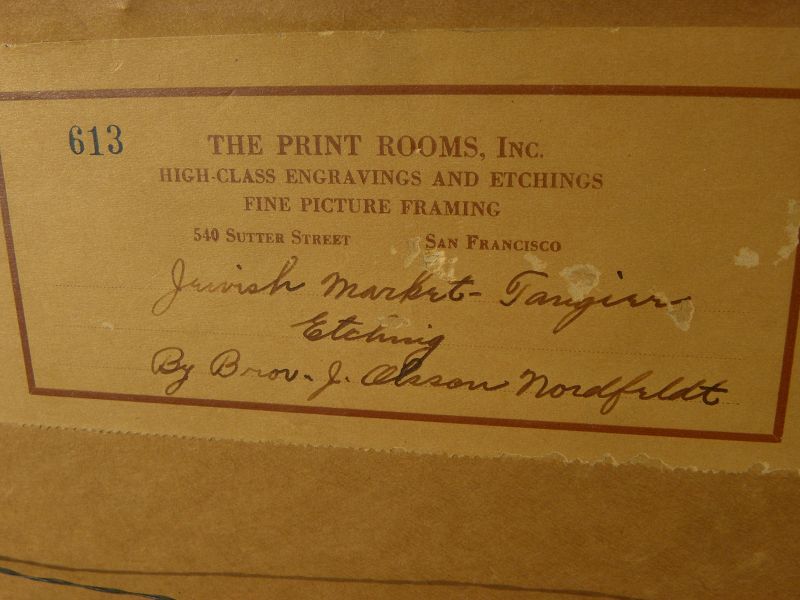 613
THE PRINT ROOMS, INC.
HIGH-CLASS ENGRAVINGS AND ETCHINGS
FINE PICTURE FRAMING
540 SUTTER STREET SAN FRANCISCO
Jewish Market - Tangier -
Etching
By Bror. J. Olsson Nordfeldt